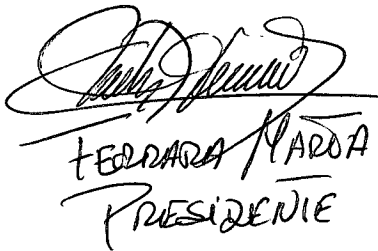 FERRARA MARTA
PRESIDENTE